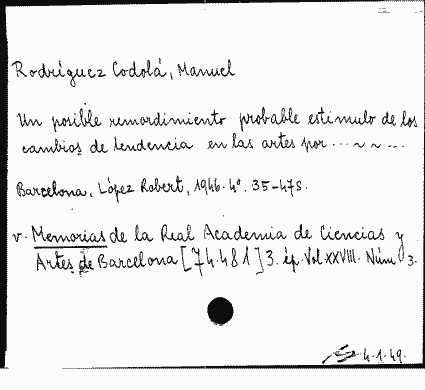 Rodríguez Codolá, Manuel
Un posible remordimiento probable estimulo de los
cambios de tendencia en las artes por ... ~ ~ ...
Barcelona, López Robert, 1946. 4º. 35-47 s.
v. Memorias de la Real Academia de Ciencias y
Artes de Barcelona [74.481] 3. ép. Vol XXVIII. Núm 3.
4.1.49.